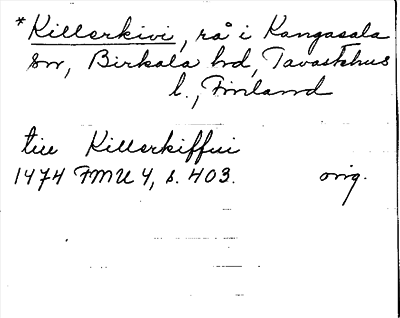 *Killerkivi, rå i Kangasala
sn, Birkala hd, Tavastehus
l., Finland
till Killerkiffui
1474 FMU 4, s. 403. orig.